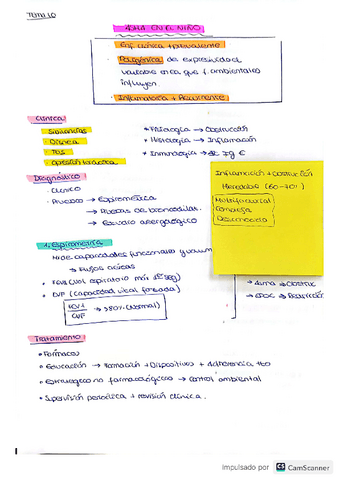 TEMA 10
ASMA EN EL NIÑO
Enf. crónica + prevalente
Poligénica de expresividad
variable en la que f. ambientales
influyen.
Inflamatoria + Recurrente
Clínica
Sibilancias
Disnea
Tos
Opresión torácica
• Fisiología → Obstrucción
• Histología → Inflamación
• Inmunología → Ig E
Inflamación + Obstrucción
Heredable (60-70%)
Multifactorial
Compleja
Desconocida
Diagnóstico
· Clínico
· Pruebas → Espirometría
→ Pruebas de broncodilat.
→ Estudio alergológico
1. Espirometría
Mide capacidades funcionales y
→ Flujos
• FEV1 (Vol espiratorio máx 1º seg)
• CVF (Capacidad vital forzada)
FEV1
CVF
→ >80% (Normal)
→ Asma → Obstruc
→ EPOC → Restricción
Tratamiento
• Fármacos
• Educación → Formación + Dispositivos + Adherencia tto
• Estrategias no farmacológicas → Control ambiental
• Supervisión periódica + revisión clínica.
Impulsado por CS CamScanner